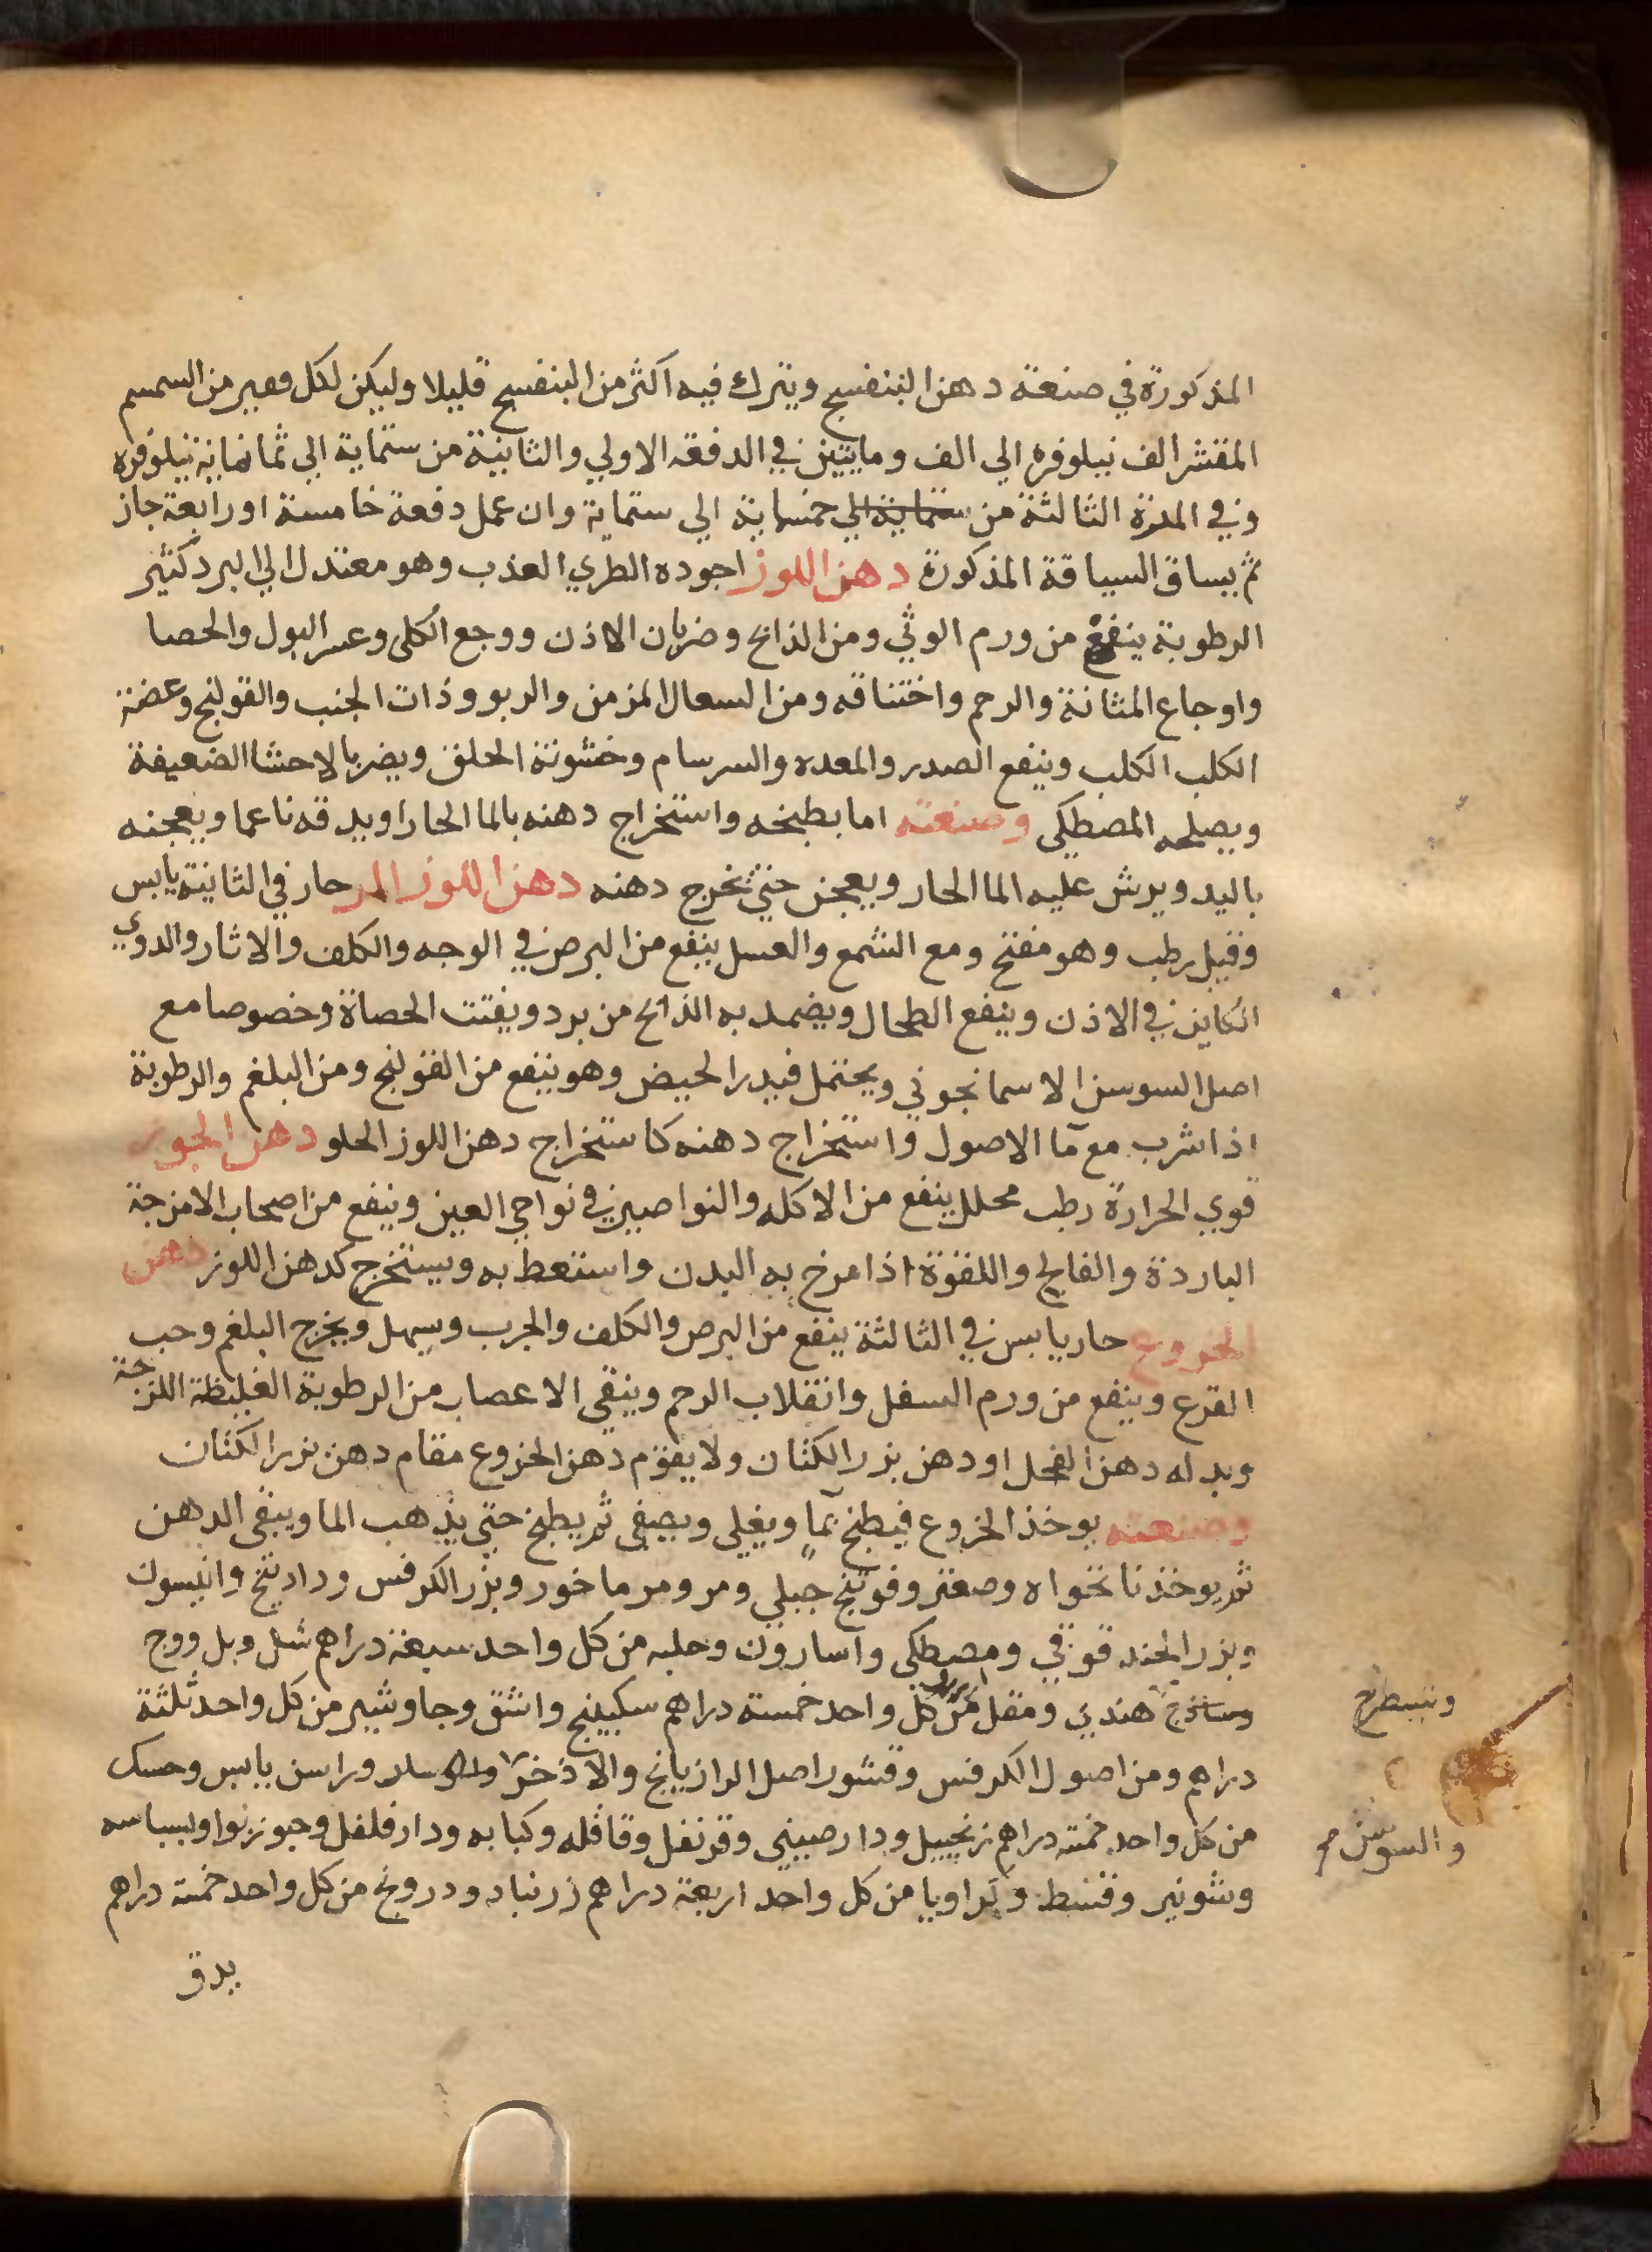 المذكورة في صنعة دهن البنفسج ويترك فيه اكثر من البنفسج قليلا وليكن لكل من السمسم
المقشر الف نيلوفرة الي الف ومايتين في الدفعة الاولي والثانية من ستماية الي ثمانماية نيلوفره
وفي المرة الثالثة من ستماية الي خمسماية الي ستماية وان عمل دفعة خامسة او رابعة جاز
ثم يساق السياقة المذكورة دهن اللوز اجوده الطري العذب وهو معتدل الي البرد كثير
الرطوبة ينفع من ورم الوثي ومن الذابح وضربان الاذن ووجع الكلى وعسر البول والحصا
واوجاع المثانة والرحم واختناقه ومن السعال المزمن والربو وذات الجنب والقولنج وعضة
الكلب الكلب وينفع الصدر والمعده والسرسام وخشونة الحلق ويضر بالاحشا الضعيفة
ويصلحه المصطكي وصنعته اما بطبخه واستخراج دهنه بالما الحار او يدقه ناعما ويعجنه
باليد ويرش عليه الما الحار ويعجن حتي تخرج دهنه دهن اللوز المر حار في الثانية يابس
وقيل رطب وهو مفتح ومع الشمع والعسل ينفع من البرص في الوجه والكلف والاثار والدوي
الكاين في الاذن وينفع الطحال ويضمد به الذابح من برد ويفتت الحصاة وخصوصا مع
اصل السوسن الاسمانجوني ويحتمل فيدر الحيض وهو ينفع من القولنج ومن البلغم والرطوبة
اذا شرب مع ما الاصول واستخراج دهنه كاستخراج دهن اللوز الحلو دهن الجوز
قوي الحرارة رطب محلل ينفع من الاكله والنواصير في نواحي العين وينفع من اصحاب الامزجة
الباردة والفالج واللقوة اذا مرخ به البدن واستعط به ويستخرج كدهن اللوز دهن
الخروع حار يابس في الثالثة ينفع من البرص والكلف والجرب ويسهل ويخرج البلغم وحب
القرع وينفع من ورم السفل وانقلاب الرحم وينقي الاعصاب من الرطوبة الغليظة اللزجة
وبدله دهن الفجل او دهن بزر الكتان ولا يقوم دهن الخروع مقام دهن بزر الكتان
وصنعته يوخذ الخروع فيطبخ بما ويغلي ويصفي ثم يطبخ حتي يذهب الما ويبقي الدهن
ثم يوخذ نانخواه وصعتر وفوتنج جبلي ومر ومرماخور وبزر الكرفس ورازينج وانيسون
وبزر الحندقوقي ومصطكي واسارون وحلبه من كل واحد سبعة دراهم شل وبل ووج
وساذج هندي ومقل من كل واحد خمسة دراهم سكبينج واشق وجاوشير من كل واحد ثلثة
دراهم ومن اصول الكرفس وقشور اصل الرازيانج والاذخر وراسن يابس وحسك
من كل واحد خمسة دراهم زنجبيل ودارصيني وقرنفل وقاقله وكبابه ودارفلفل وجوزبوا وبسباسه
وشونيز وقسط وكراويا من كل واحد اربعة دراهم زرنباد ودرونج من كل واحد خمسة دراهم
يدق
وشيطرج
والسوسن